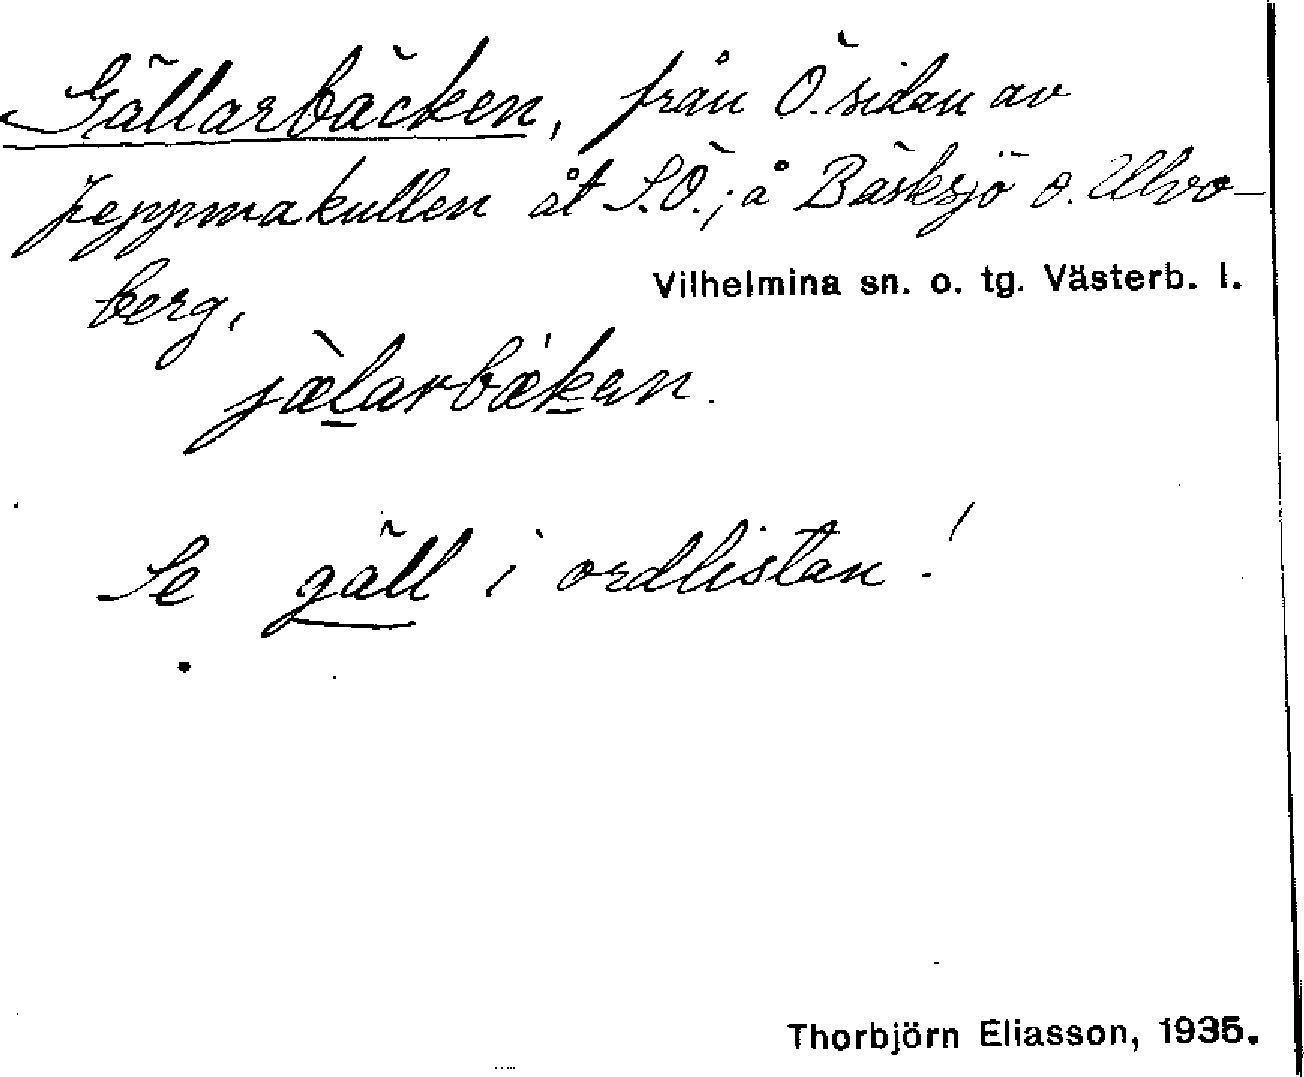 Gällarbäcken, från Ö. sidan av
Jeppmakullen åt S.Ö.; å Bäsksjö o. Ulvo-
berg,
Vilhelmina sn. o. tg. Västerb. l.
jæ̀larbæ̍ken.
Se gäll i ordlistan!
Thorbjörn Eliasson, 1935.